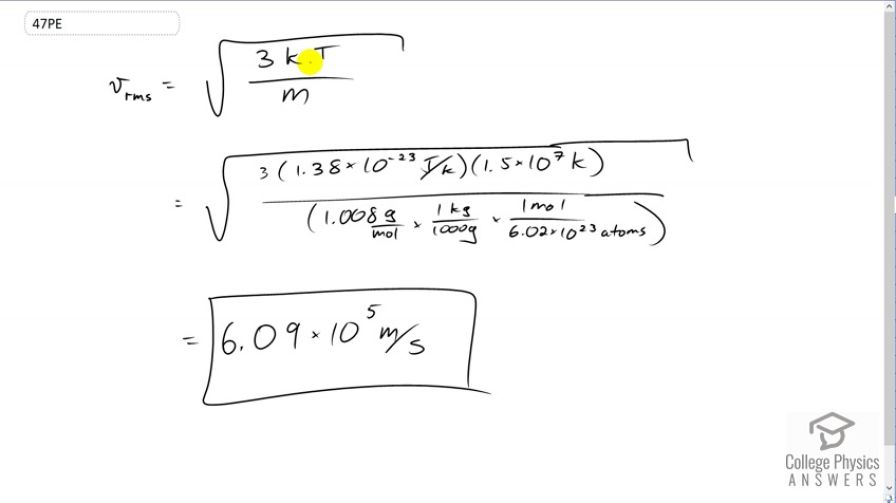 47PE
v_rms = √(3 k T / m)
= √(3 (1.38 × 10^-23 J/k)(1.5 × 10^7 k) / (1.008 g/mol × 1 kg/1000g × 1 mol/6.02 × 10^23 atoms))
= 6.09 × 10^5 m/s
College Physics
ANSWERS